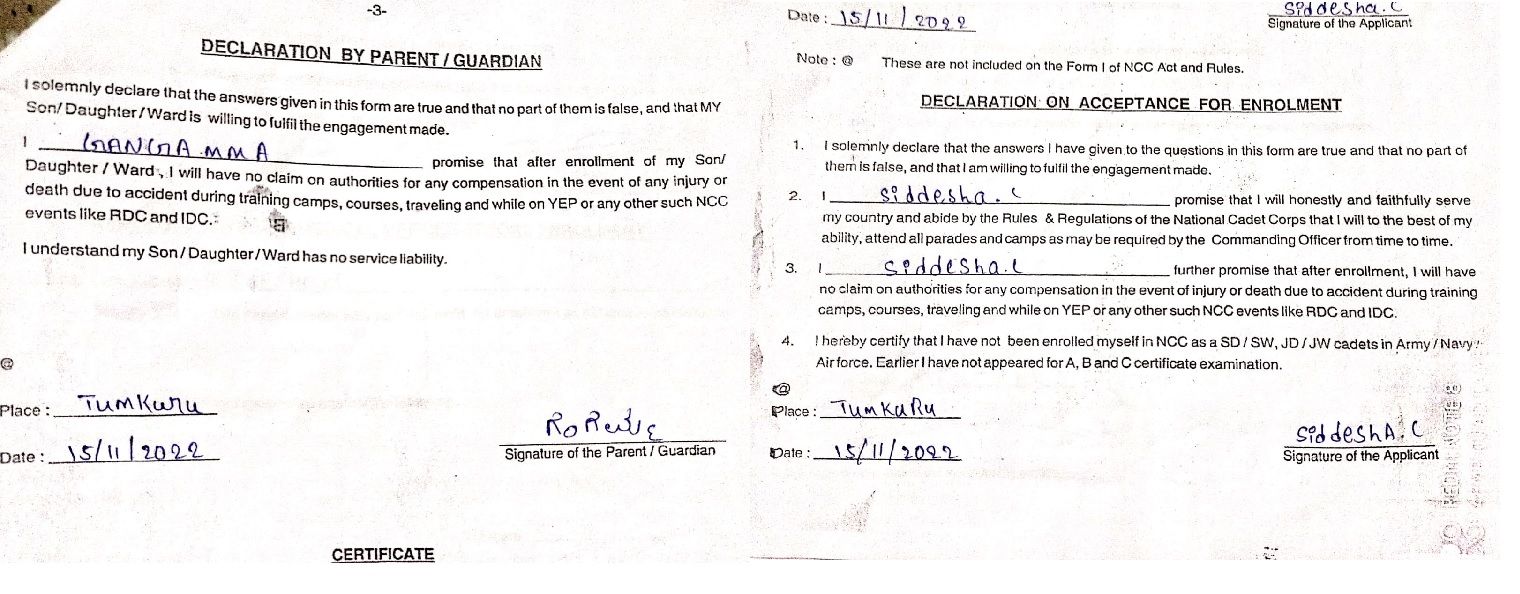 -3-
DECLARATION BY PARENT / GUARDIAN
I solemnly declare that the answers given in this form are true and that no part of them is false, and that MY
Son/ Daughter / Ward is willing to fulfil the engagement made.
I GANGA.MMA promise that after enrollment of my Son/
Daughter / Ward, I will have no claim on authorities for any compensation in the event of any injury or
death due to accident during training camps, courses, traveling and while on YEP or any other such NCC
events like RDC and IDC.
I understand my Son / Daughter / Ward has no service liability.
@
Place : Tumkuru
Date : 15/11/2022
Signature of the Parent / Guardian
CERTIFICATE
Date : 15/11/2022
Siddesha.C
Signature of the Applicant
Note : @ These are not included on the Form I of NCC Act and Rules.
DECLARATION ON ACCEPTANCE FOR ENROLMENT
1. I solemnly declare that the answers I have given to the questions in this form are true and that no part of
them is false, and that I am willing to fulfil the engagement made.
2. I Siddesha.C promise that I will honestly and faithfully serve
my country and abide by the Rules & Regulations of the National Cadet Corps that I will to the best of my
ability, attend all parades and camps as may be required by the Commanding Officer from time to time.
3. I Siddesha.C further promise that after enrollment, I will have
no claim on authorities for any compensation in the event of injury or death due to accident during training
camps, courses, traveling and while on YEP or any other such NCC events like RDC and IDC.
4. I hereby certify that I have not been enrolled myself in NCC as a SD / SW, JD / JW cadets in Army / Navy /
Air force. Earlier I have not appeared for A, B and C certificate examination.
@
Place : TumKuRu
Date : 15/11/2022
SiddeshA.C
Signature of the Applicant